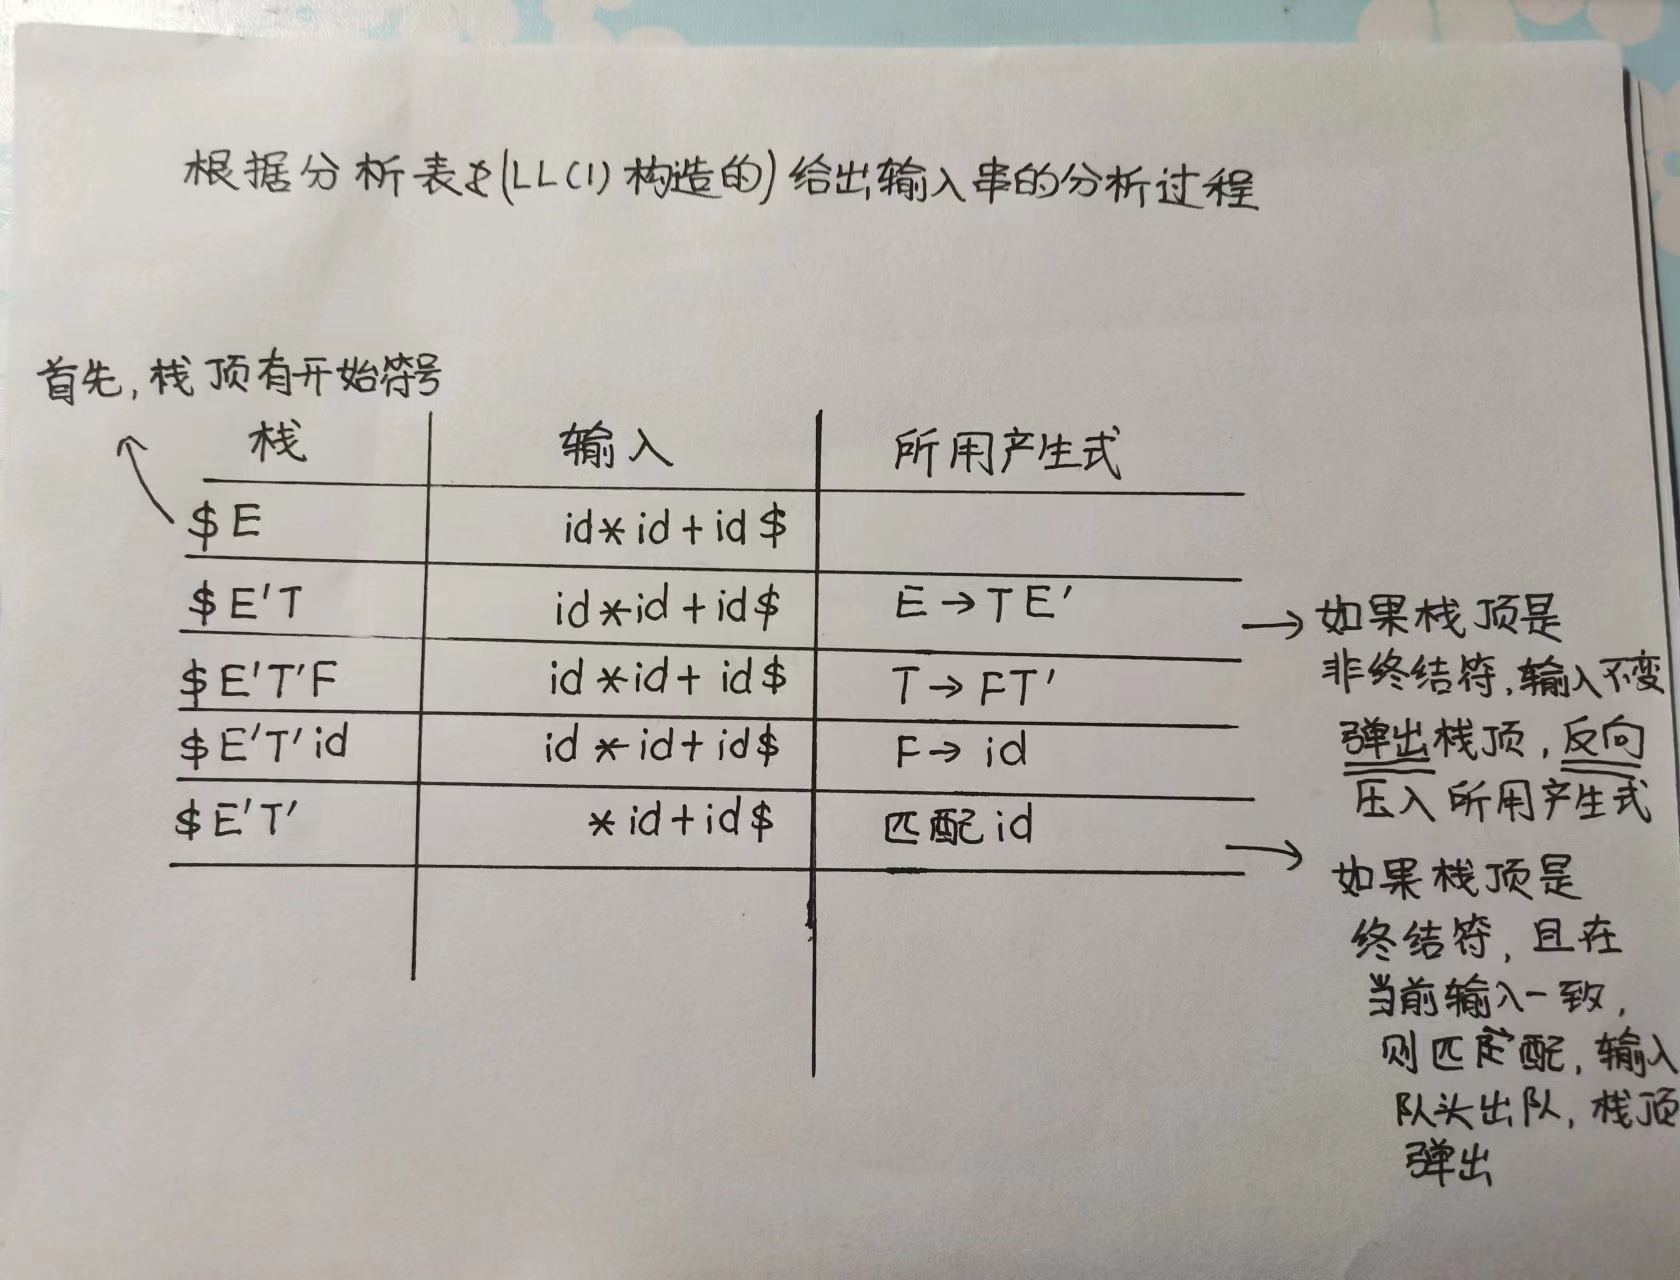 根据分析表(LL(1)构造的)给出输入串的分析过程
首先,栈顶有开始符号
栈 输入 所用产生式
$E id*id+id$
$E'T id*id+id$ E→TE'
$E'T'F id*id+id$ T→FT'
$E'T'id id*id+id$ F→id
$E'T' *id+id$ 匹配id
→如果栈顶是
非终结符,输入不变
弹出栈顶,反向
压入所用产生式
→如果栈顶是
终结符,且在
当前输入一致,
则匹配,输入
队头出队,栈顶
弹出